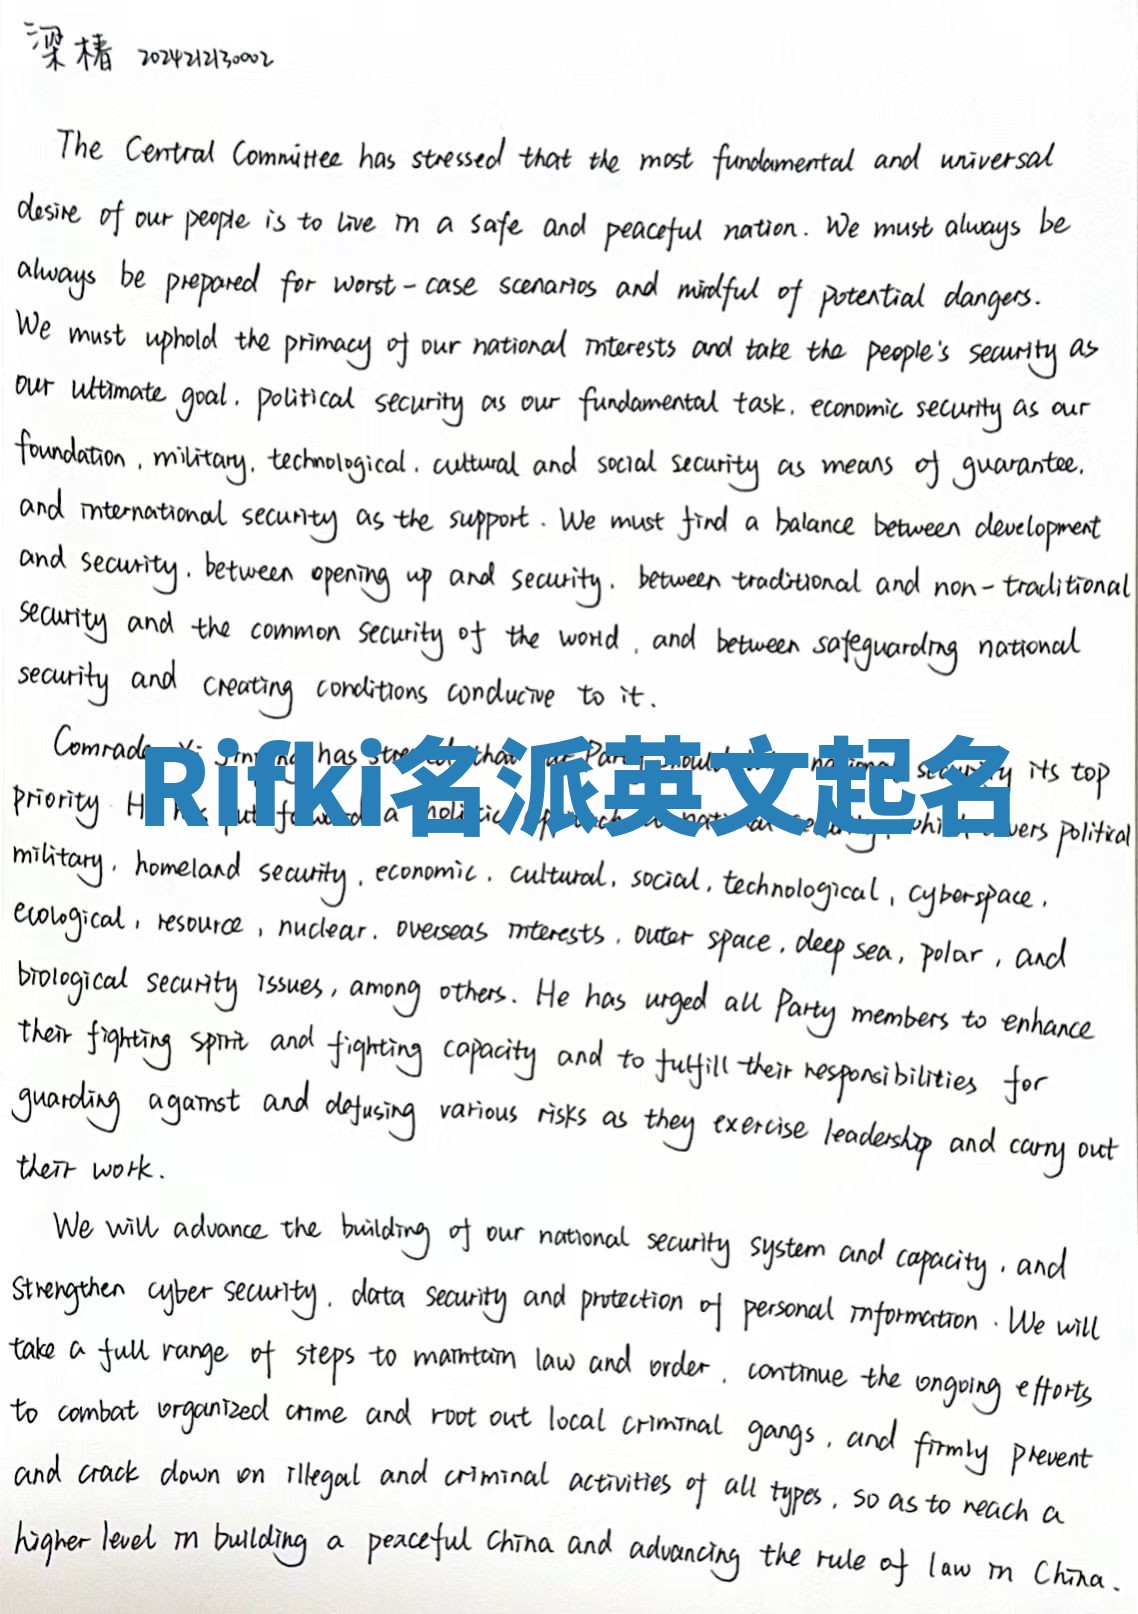 梁椿 2024212130002
The Central Committee has stressed that the most fundamental and universal
desire of our people is to live in a safe and peaceful nation. We must always be
always be prepared for worst-case scenarios and mindful of potential dangers.
We must uphold the primacy of our national interests and take the people's security as
our ultimate goal, political security as our fundamental task, economic security as our
foundation, military, technological, cultural and social security as means of guarantee,
and international security as the support. We must find a balance between development
and security, between opening up and security, between traditional and non-traditional
security and the common security of the world, and between safeguarding national
security and creating conditions conducive to it.
Comrade has that its top
Rifki名派英文起名
priority a political
military, homeland security, economic, cultural, social, technological, cyberspace,
ecological, resource, nuclear, overseas interests, outer space, deep sea, polar, and
biological security issues, among others. He has urged all Party members to enhance
their fighting spirit and fighting capacity and to fulfill their responsibilities for
guarding against and defusing various risks as they exercise leadership and carry out
their work.
We will advance the building of our national security system and capacity, and
strengthen cyber security, data security and protection of personal information. We will
take a full range of steps to maintain law and order, continue the ongoing efforts
to combat organized crime and root out local criminal gangs, and firmly prevent
and crack down on illegal and criminal activities of all types, so as to reach a
higher level in building a peaceful China and advancing the rule of law in China.